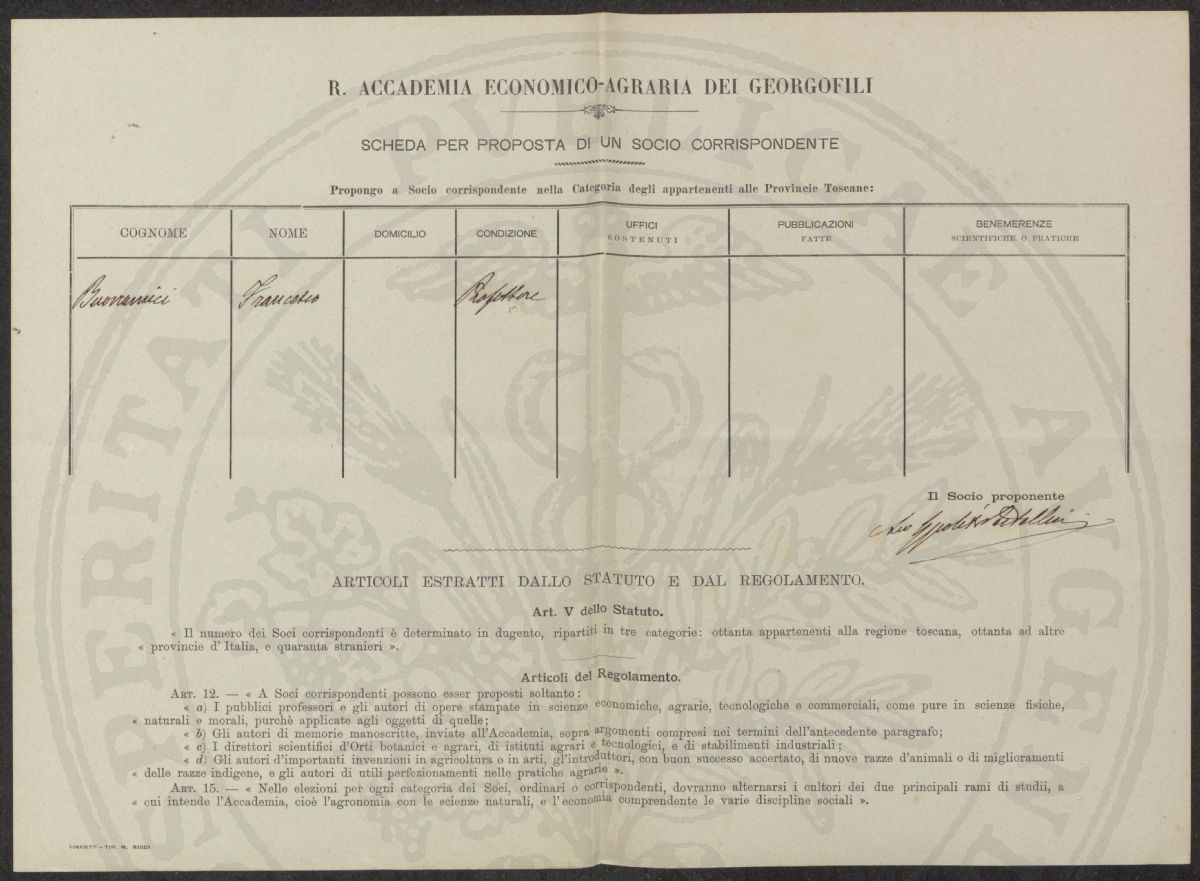 R. ACCADEMIA ECONOMICO-AGRARIA DEI GEORGOFILI
SCHEDA PER PROPOSTA DI UN SOCIO CORRISPONDENTE
Propongo a Socio corrispondente nella Categoria degli appartenenti alle Provincie Toscane:
COGNOME NOME DOMICILIO CONDIZIONE UFFICI SOSTENUTI PUBBLICAZIONI FATTE BENEMERENZE SCIENTIFICHE O PRATICHE
Buonamici Francesco Professore
Il Socio proponente
ARTICOLI ESTRATTI DALLO STATUTO E DAL REGOLAMENTO.
Art. V dello Statuto.
« Il numero dei Soci corrispondenti è determinato in dugento, ripartiti in tre categorie: ottanta appartenenti alla regione toscana, ottanta ad altre
« provincie d'Italia, e quaranta stranieri ».
Articoli del Regolamento.
ART. 12. — « A Soci corrispondenti possono esser proposti soltanto:
« a) I pubblici professori e gli autori di opere stampate in scienze economiche, agrarie, tecnologiche e commerciali, come pure in scienze fisiche,
« naturali e morali, purchè applicate agli oggetti di quelle;
« b) Gli autori di memorie manoscritte, inviate all'Accademia, sopra argomenti compresi nei termini dell'antecedente paragrafo;
« c) I direttori scientifici d'Orti botanici e agrari, di istituti agrari e tecnologici, e di stabilimenti industriali;
« d) Gli autori d'importanti invenzioni in agricoltura o in arti, gl'introduttori, con buon successo accertato, di nuove razze d'animali o di miglioramenti
« delle razze indigene, e gli autori di utili perfezionamenti nelle pratiche agrarie ».
ART. 15. — « Nelle elezioni per ogni categoria dei Soci, ordinari o corrispondenti, dovranno alternarsi i cultori dei due principali rami di studii, a
« cui intende l'Accademia, cioè l'agronomia con le scienze naturali, e l'economia comprendente le varie discipline sociali ».
FIRENZE – TIP. M. RICCI
PROSPERITATI PUBLICAE AUGENDAE